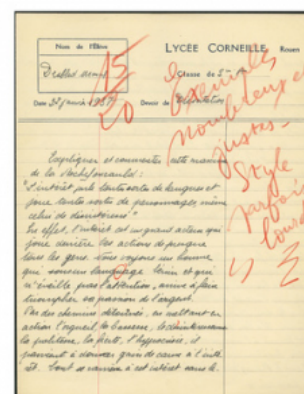 Nom de l'Élève
LYCÉE CORNEILLE, Rouen
15
20
Classe de
Date 1937
Devoir de
Exemples
nombreux et
justes -
Style
parfois
lourd
Expliquer et commenter cette maxime
de La Rochefoucauld :
"L'intérêt parle toutes sortes de langues et
joue toutes sortes de personnages, même
celui de désintéressé."
En effet, l'intérêt est un grand acteur qui
joue derrière les actions de presque
tous les gens. Nous voyons un homme
que son langage terne et qui
n'éveille pas l'attention, arrive à faire
triompher sa passion de l'argent.
Par des chemins détournés, en mettant en
action l'orgueil, la bassesse,
la politesse, la fierté, l'hypocrisie, il
parvient à donner gain de cause à l'inté
rêt. Tout se ramène à cet intérêt sans le